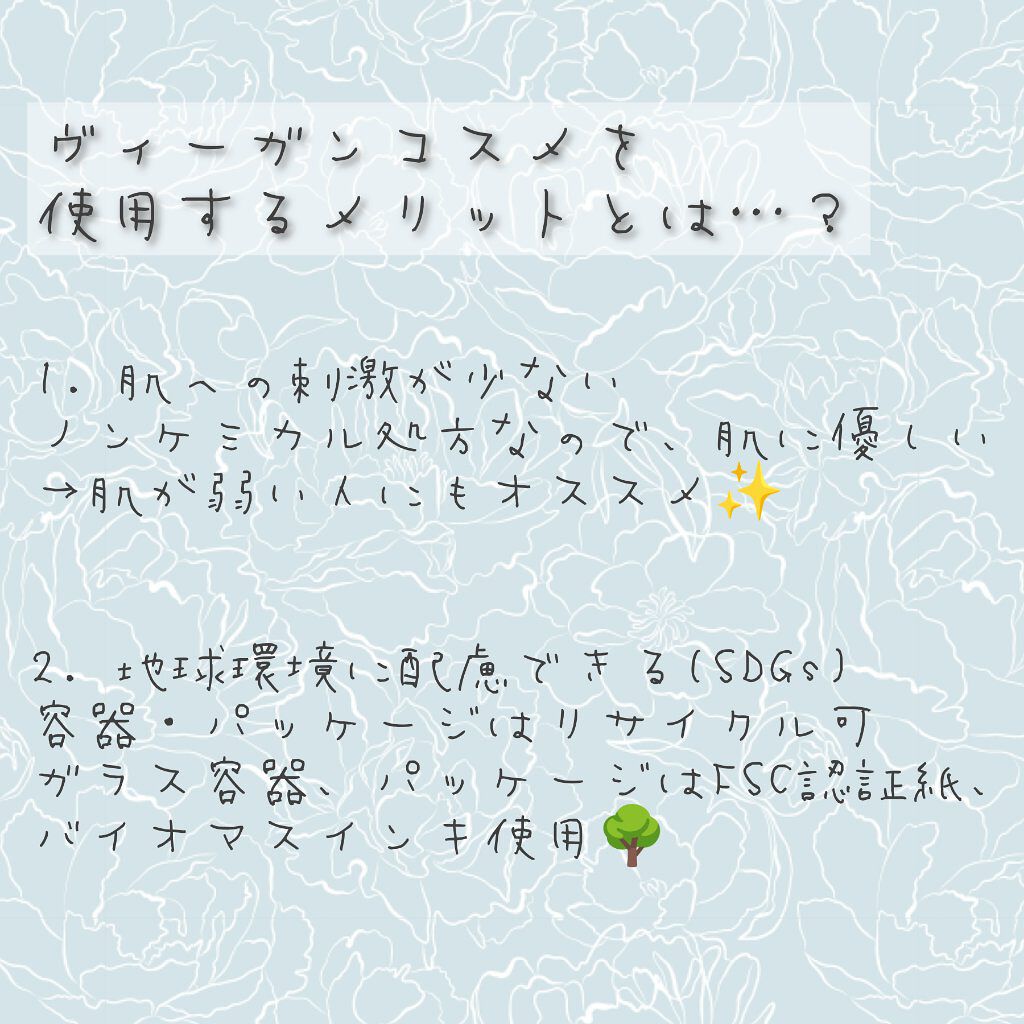 ヴィーガンコスメを
使用するメリットとは…?
1. 肌への刺激が少ない
ノンケミカル処方なので、肌に優しい
→肌が弱い人にもオススメ✨
2. 地球環境に配慮できる(SDGs)
容器・パッケージはリサイクル可
ガラス容器、パッケージはFSC認証紙、
バイオマスインキ使用🌳